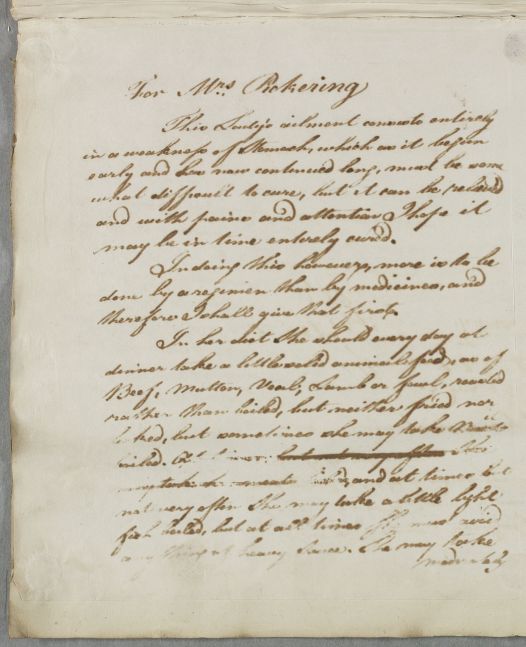 For Mrs Pickering
This Lady's ailment consists entirely
in a weakness of Stomach, which as it began
early and has now continued long, must be some
what difficult to cure, but it can be relieved
and with pains and attention I hope it
may be in time entirely cur'd.
In doing this however, more is to be
done by a regimen than by medicines, and
therefore I shall give that first.
In her diet She should every day at
dinner take a little solid animal food, as of
Beef, Mutton, Veal, Lamb or fowl, roasted
rather than boiled, but neither fried nor
baked, but sometimes she may take
boiled. but not very often She
may take meats and at times but
not very often She may take a little light
fish boiled, but at all times must avoid
any thing of heavy Sauce. She may take
moderately